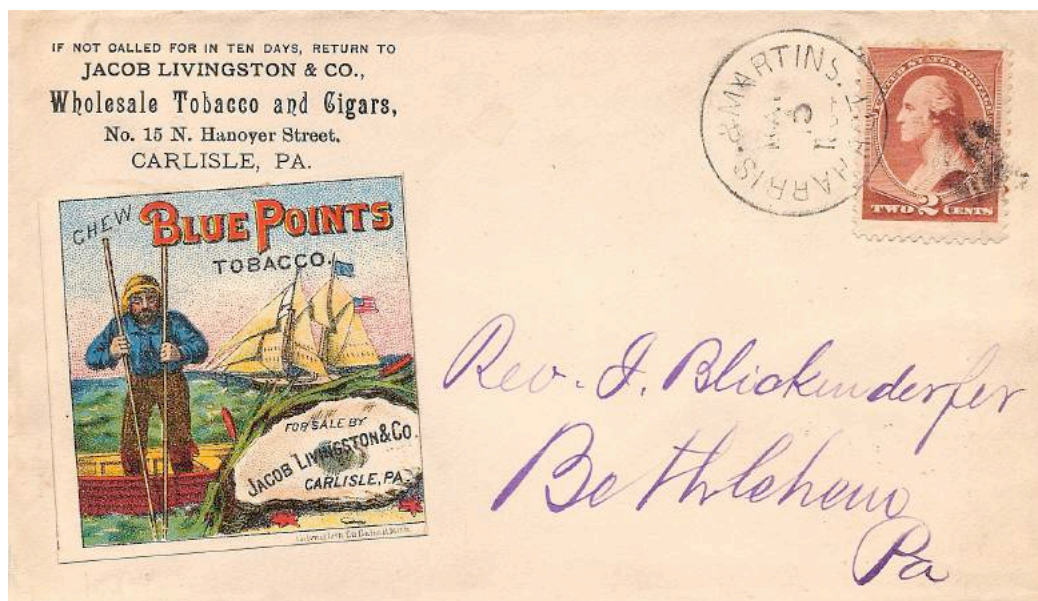 IF NOT CALLED FOR IN TEN DAYS, RETURN TO
JACOB LIVINGSTON & CO.,
Wholesale Tobacco and Cigars,
No. 15 N. Hanover Street.
CARLISLE, PA.
CHEW
BLUE POINTS
TOBACCO.
FOR SALE BY
JACOB LIVINGSTON & CO.
CARLISLE, PA.
HARRIS. & MARTINS.
UNITED STATES POSTAGE
TWO 2 CENTS
Rev. J. Blickenderfer
Bethlehem
Pa